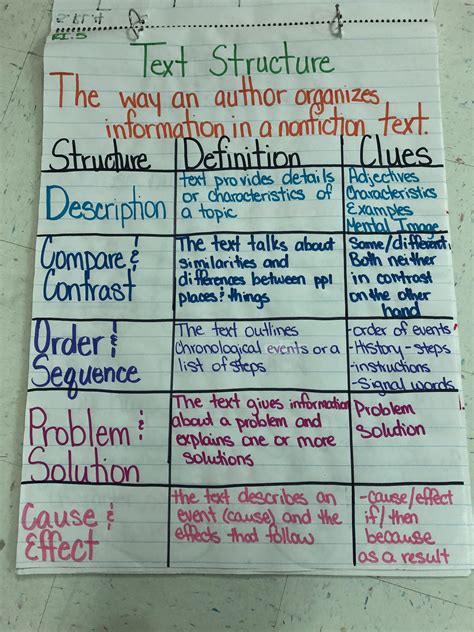 RI.5
Text Structure
The way an author organizes
information in a nonfiction text.
Structure Definition Clues
Description
text provides details
or characteristics of
a topic
Adjectives
Characteristics
Examples
Mental Image
Compare &
Contrast
The text talks about
similarities and
differences between ppl
places & things
Same/different
Both neither
in contrast
on the other
hand
Order &
Sequence
The text outlines
Chronological events or a
list of steps
-order of events
-History -steps
-instructions
-Signal words
Problem &
Solution
The text gives information
about a problem and
explains one or more
solutions
Problem
Solution
Cause &
Effect
the text describes an
event (cause) and the
effects that follow
-cause/effect
if/then
because
as a result